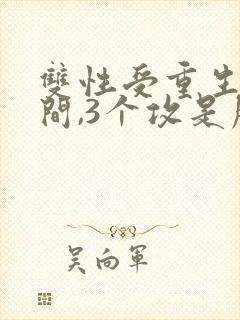 雙性受重生
間,3个攻是
吴向軍